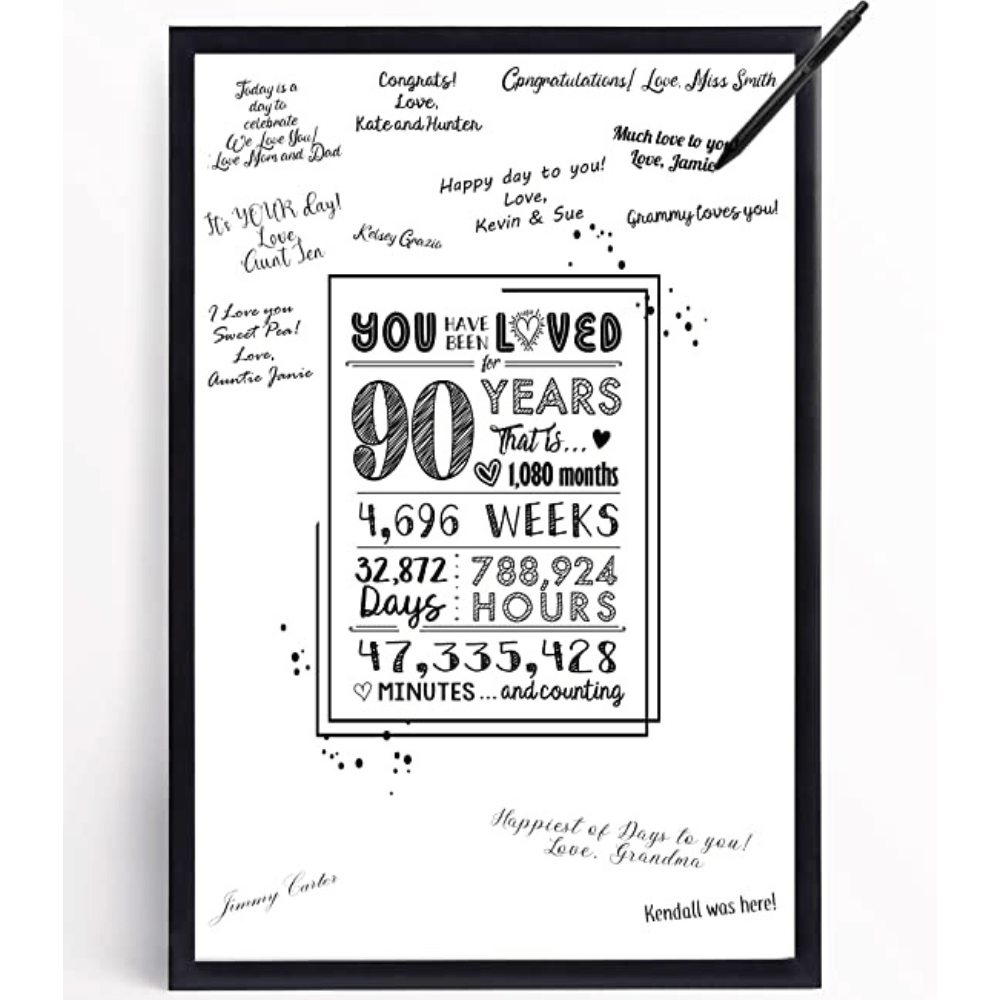 Today is a
day to
celebrate
We Love You!
Love Mom and Dad
Congrats!
Love,
Kate and Hunter
Congratulations! Love, Miss Smith
Much love to you
Love, Jamie
Happy day to you!
Love,
Kevin & Sue
Grammy loves you!
It's YOUR day!
Love,
Aunt Jen
Kelsey Grazia
I Love you
Sweet Pea!
Love,
Auntie Janie
YOU HAVE BEEN LOVED
for
90 YEARS
That is...
1,080 months
4,696 WEEKS
32,872 Days
788,924 HOURS
47,335,428
MINUTES ... and counting
Happiest of Days to you!
Love, Grandma
Jimmy Carter
Kendall was here!